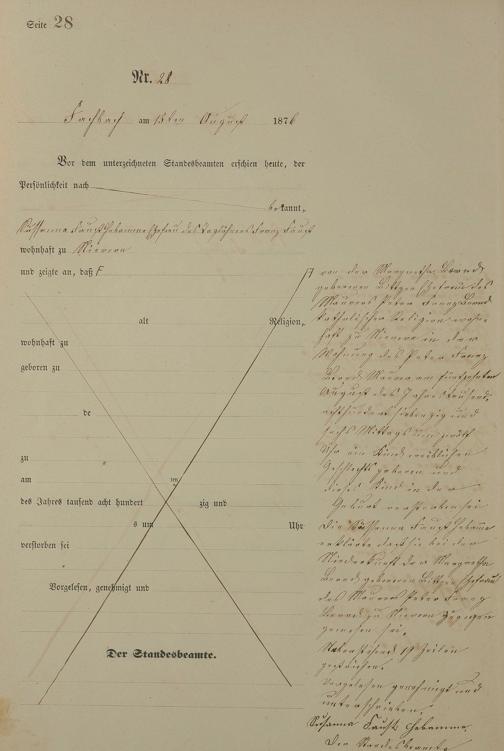 Seite 28
Nr. 28
Fachbach am 18ten August 1876
Vor dem unterzeichneten Standesbeamten erschien heute, der
Persönlichkeit nach
bekannt,
Sussanna Faust Hebamme Ehefrau des Taglöhners Franz Faust
wohnhaft zu Nievern
und zeigte an, daß
alt Religion,
wohnhaft zu
geboren zu
de
zu
am
des Jahres tausend acht hundert zig und
s um Uhr
verstorben sei
Vorgelesen, genehmigt und
Der Standesbeamte.
von der Margretha
geborenen Ehefrau des
Maurers Peter Franz
katholischer Religion wohn-
haft zu Nievern in der
Wohnung des Peter Franz
Maurer am fünfzehnten
August des Jahres tausend
achthundert siebenzig und
sechs Mittags um zwölf
Uhr ein Kind weiblichen
Geschlechts geboren und
dieses Kind in der
Geburt verstorben sei
Die Sussanna Faust Hebamme
erklärte daß sie bei der
Niederkunft der Margretha
geborenen Ehefrau
des Maurers Peter Franz
zu Nievern zugegen
gewesen sei.
Vorstehend 19 Zeilen
gestrichen.
Vorgelesen genehmigt und
unterschrieben.
Susanna Faust Hebamme
Der Standesbeamte